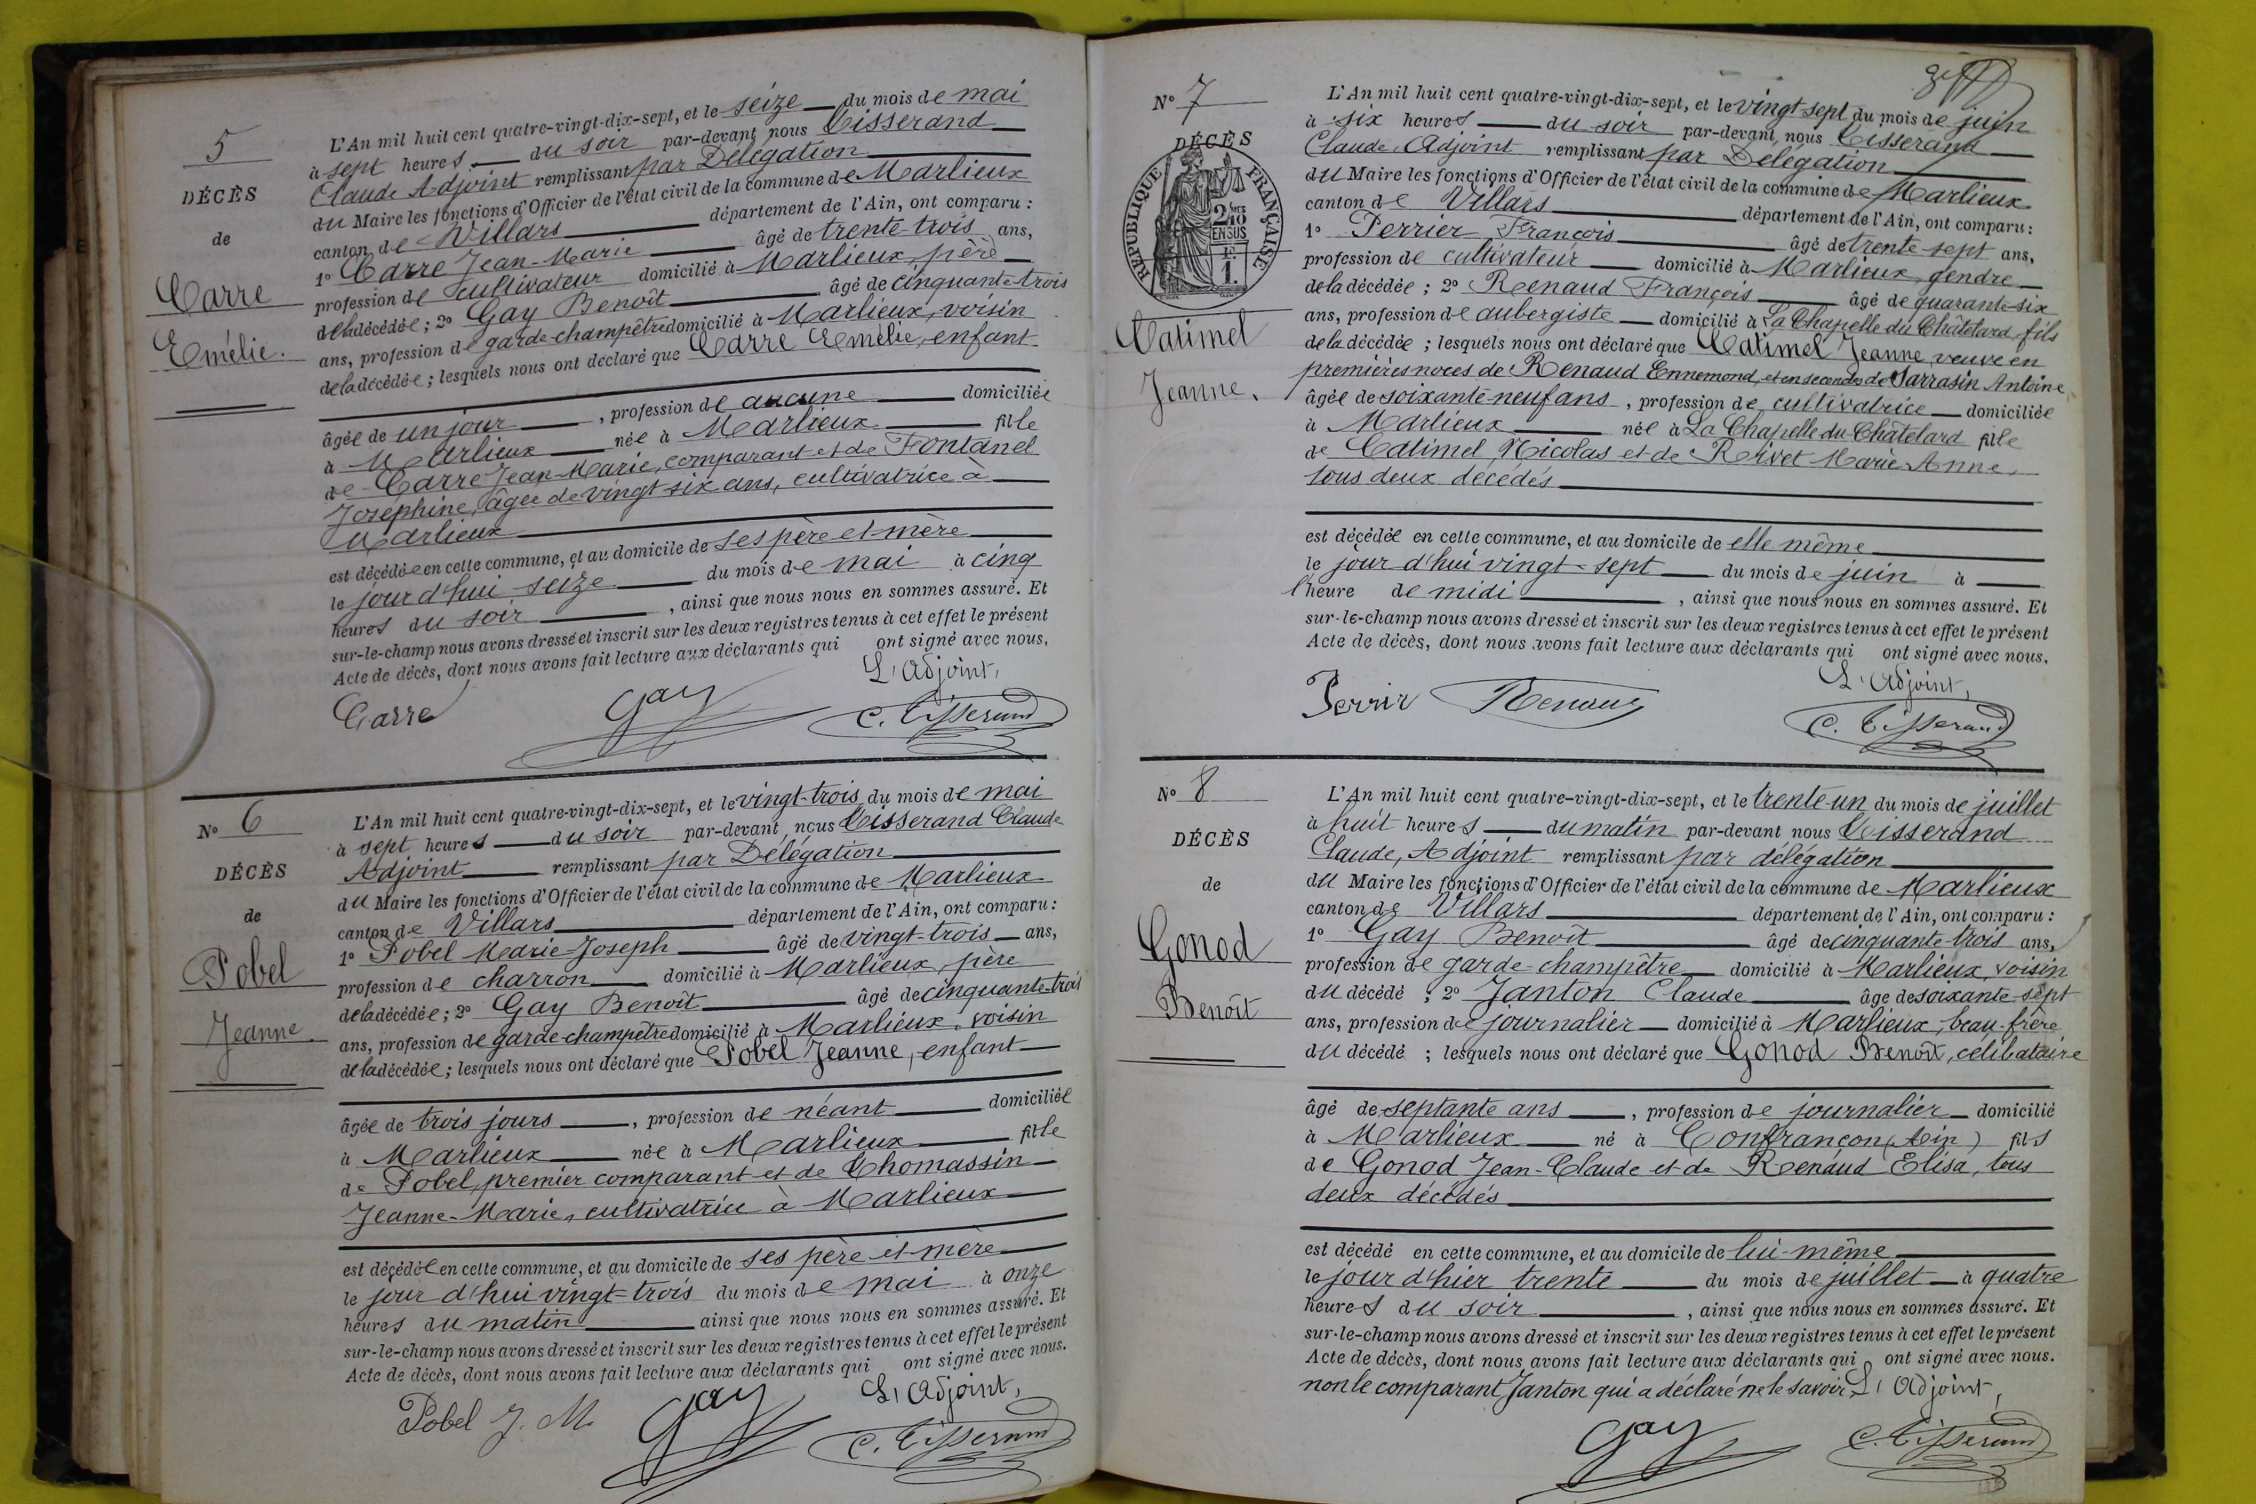 5
DÉCÈS
de
Carre
Emélie.
L'An mil huit cent quatre-vingt-dix-sept, et le seize du mois de mai
à sept heures du soir par-devant nous Tisserand
Claude Adjoint remplissant par Délégation
du Maire les fonctions d'Officier de l'état civil de la commune de Marlieux
canton de Villars département de l'Ain, ont comparu :
1º Carre Jean-Marie âgé de trente-trois ans,
profession de cultivateur domicilié à Marlieux, père
de la décédée ; 2º Gay Benoît âgé de cinquante-trois
ans, profession de garde-champêtre domicilié à Marlieux, voisin
de la décédée ; lesquels nous ont déclaré que Carre Emélie, enfant
âgée de un jour , profession de aucune domiciliée
à Marlieux née à Marlieux fille
de Carre Jean-Marie, comparant et de Fontanel
Joséphine, âgée de vingt-six ans, cultivatrice à
Marlieux
est décédée en cette commune, et au domicile de ses père et mère
le jour d'hui seize du mois de mai à cinq
heures du soir , ainsi que nous nous en sommes assuré. Et
sur-le-champ nous avons dressé et inscrit sur les deux registres tenus à cet effet le présent
Acte de décès, dont nous avons fait lecture aux déclarants qui ont signé avec nous.
L'Adjoint,
Carre Gay C. Tisserand
Nº 6
DÉCÈS
de
Pobel
Jeanne.
L'An mil huit cent quatre-vingt-dix-sept, et le vingt-trois du mois de mai
à sept heures du soir par-devant nous Tisserand Claude
Adjoint remplissant par Délégation
du Maire les fonctions d'Officier de l'état civil de la commune de Marlieux
canton de Villars département de l'Ain, ont comparu :
1º Pobel Marie-Joseph âgé de vingt-trois ans,
profession de charron domicilié à Marlieux, père
de la décédée ; 2º Gay Benoît âgé de cinquante-trois
ans, profession de garde-champêtre domicilié à Marlieux, voisin
de la décédée ; lesquels nous ont déclaré que Pobel Jeanne, enfant
âgée de trois jours , profession de néant domiciliée
à Marlieux née à Marlieux fille
de Pobel, premier comparant et de Thomassin
Jeanne-Marie, cultivatrice à Marlieux
est décédée en cette commune, et au domicile de ses père et mère
le jour d'hui vingt-trois du mois de mai à onze
heures du matin ainsi que nous nous en sommes assuré. Et
sur-le-champ nous avons dressé et inscrit sur les deux registres tenus à cet effet le présent
Acte de décès, dont nous avons fait lecture aux déclarants qui ont signé avec nous.
L'Adjoint,
Pobel J. M. Gay C. Tisserand
Nº 7
DÉCÈS
RÉPUBLIQUE FRANÇAISE
2/10
EN SUS
1F.
Catimel
Jeanne.
L'An mil huit cent quatre-vingt-dix-sept, et le vingt-sept du mois de juin
à six heures du soir par-devant nous Tisserand
Claude, Adjoint remplissant par Délégation
du Maire les fonctions d'Officier de l'état civil de la commune de Marlieux
canton de Villars département de l'Ain, ont comparu :
1º Perrier François âgé de trente-sept ans,
profession de cultivateur domicilié à Marlieux, gendre
de la décédée ; 2º Renaud François âgé de quarante-six
ans, profession de aubergiste domicilié à La Chapelle du Châtelard, fils
de la décédée ; lesquels nous ont déclaré que Catimel Jeanne veuve en
premières noces de Renaud Ennemond, et en secondes de Sarrasin Antoine
âgée de soixante-neuf ans , profession de cultivatrice domiciliée
à Marlieux née à La Chapelle du Châtelard fille
de Catimel Nicolas et de Rivet Marie-Anne,
tous deux décédés
est décédée en cette commune, et au domicile de elle même
le jour d'hui vingt-sept du mois de juin à
l'heure de midi , ainsi que nous nous en sommes assuré. Et
sur-le-champ nous avons dressé et inscrit sur les deux registres tenus à cet effet le présent
Acte de décès, dont nous avons fait lecture aux déclarants qui ont signé avec nous.
L'Adjoint,
Perrier Renaud C. Tisserand
Nº 8
DÉCÈS
de
Gonod
Benoît
L'An mil huit cent quatre-vingt-dix-sept, et le trente-un du mois de juillet
à huit heures du matin par-devant nous Tisserand
Claude, Adjoint remplissant par délégation
du Maire les fonctions d'Officier de l'état civil de la commune de Marlieux
canton de Villars département de l'Ain, ont comparu :
1º Gay Benoît âgé de cinquante-trois ans,
profession de garde-champêtre domicilié à Marlieux, voisin
du décédé ; 2º Janton Claude âgé de soixante-sept
ans, profession de journalier domicilié à Marlieux, beau-frère
du décédé ; lesquels nous ont déclaré que Gonod Benoît, célibataire
âgé de septante ans , profession de journalier domicilié
à Marlieux né à Confrançon (Ain) fils
de Gonod Jean-Claude et de Renaud Elisa, tous
deux décédés
est décédé en cette commune, et au domicile de lui-même
le jour d'hier trente du mois de juillet à quatre
heures du soir , ainsi que nous nous en sommes assuré. Et
sur-le-champ nous avons dressé et inscrit sur les deux registres tenus à cet effet le présent
Acte de décès, dont nous avons fait lecture aux déclarants qui ont signé avec nous.
non le comparant Janton qui a déclaré ne le savoir. L'Adjoint,
Gay C. Tisserand